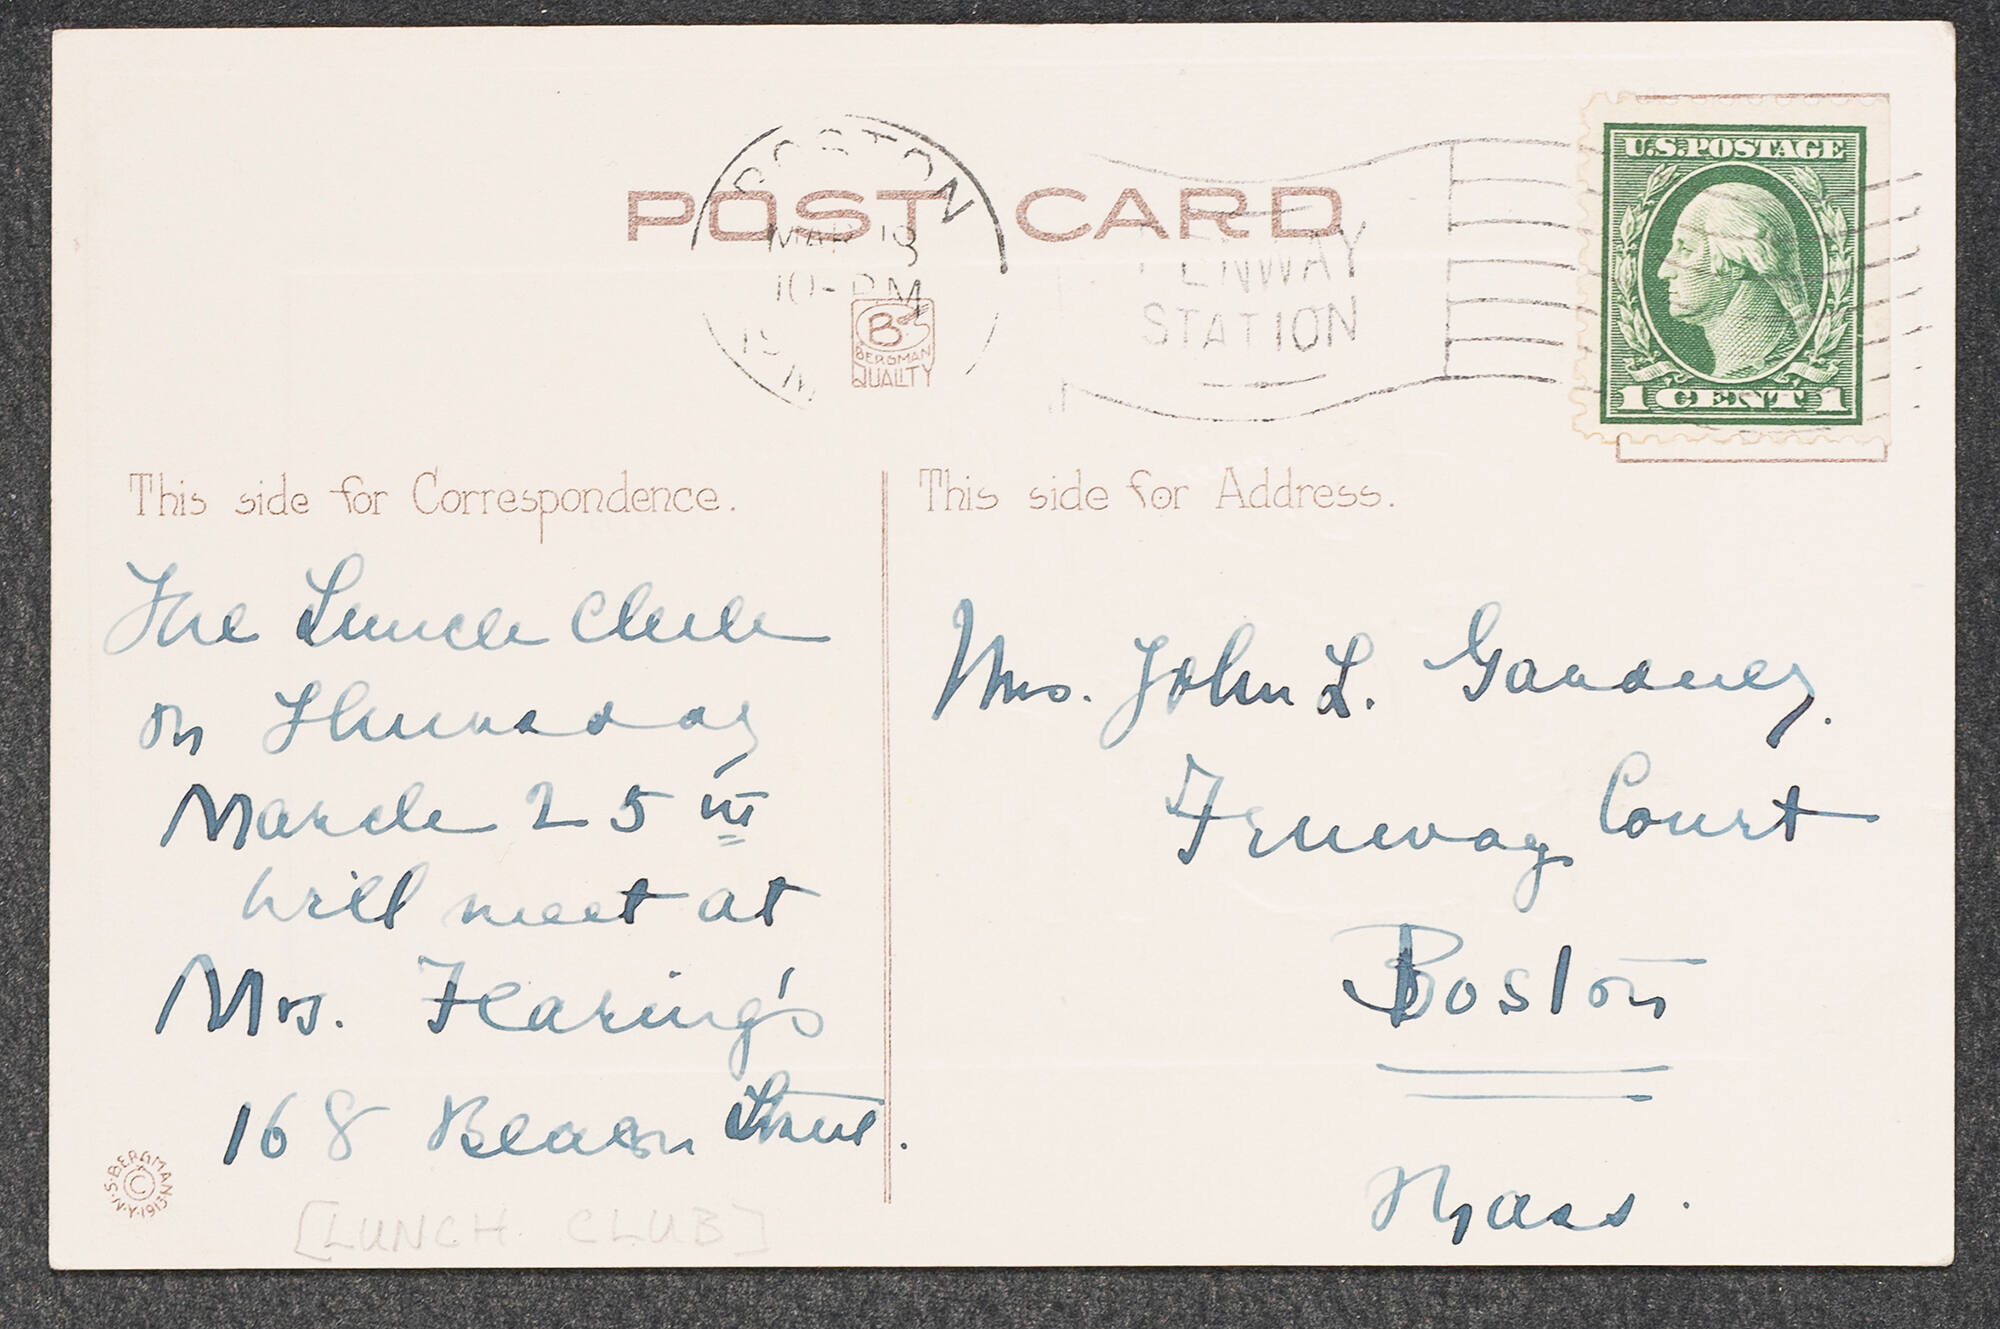 POST CARD
BOSTON
MAR 19
10-PM
FENWAY
STATION
U.S. POSTAGE
1 CENT 1
B
BERGMAN
QUALITY
This side for Correspondence.
The Lunch Club
on Thursday
March 25th
will meet at
Mrs.
168 Beacon Street.
© S. BERGMAN N.Y. 1913
[LUNCH CLUB]
This side for Address.
Mrs. John L. Gardner,
Fenway Court
Boston
Mass.